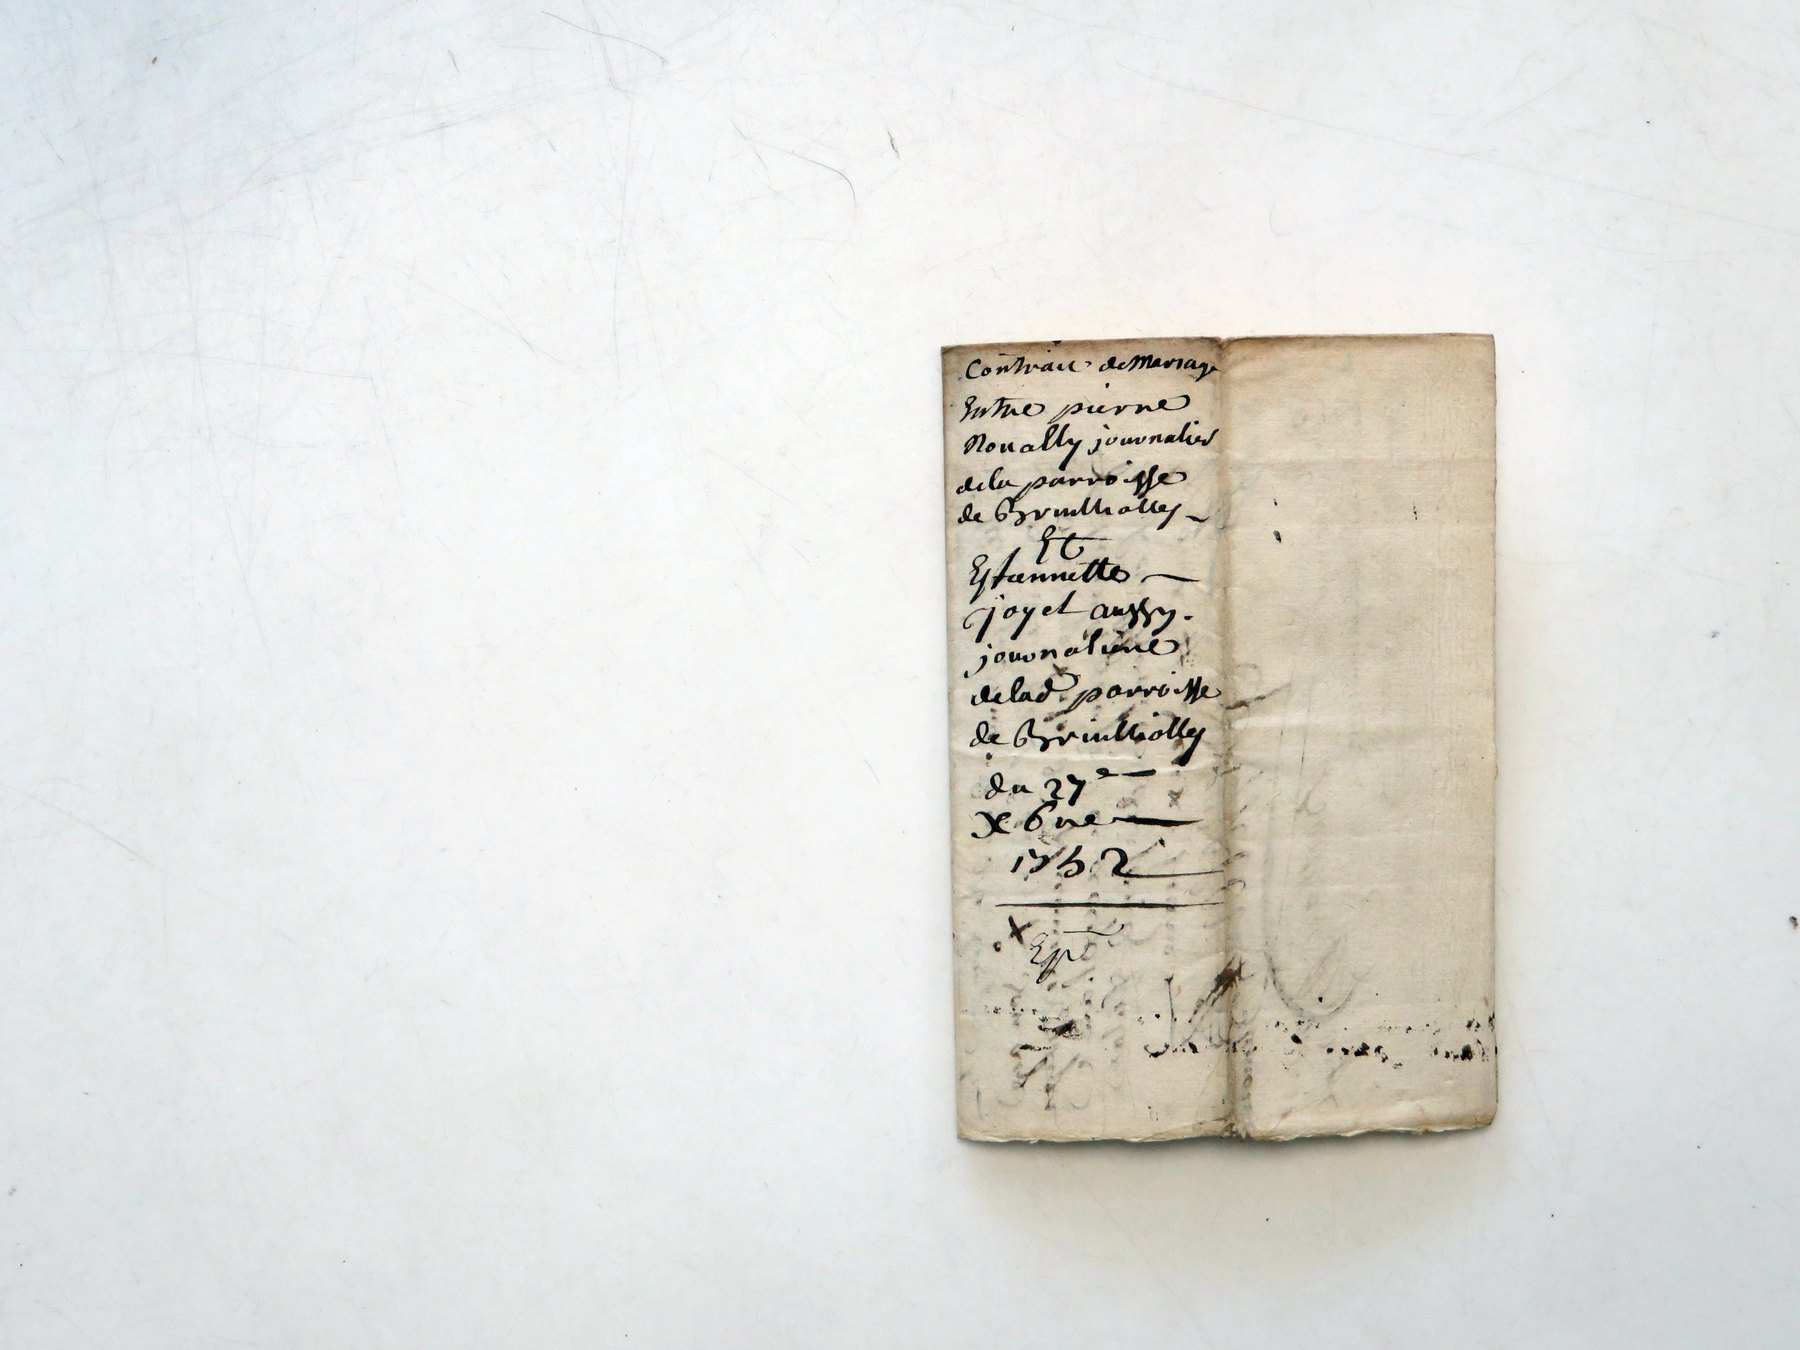 Contract de Mariage
Entre pierre
Roually journalier
dela parroisse
de Brinlliolley
Et
Estiennette
joyel aussy
journaliere
delad parroisse
de Brinlliolley
du 27e
Xbre
1752
Exp